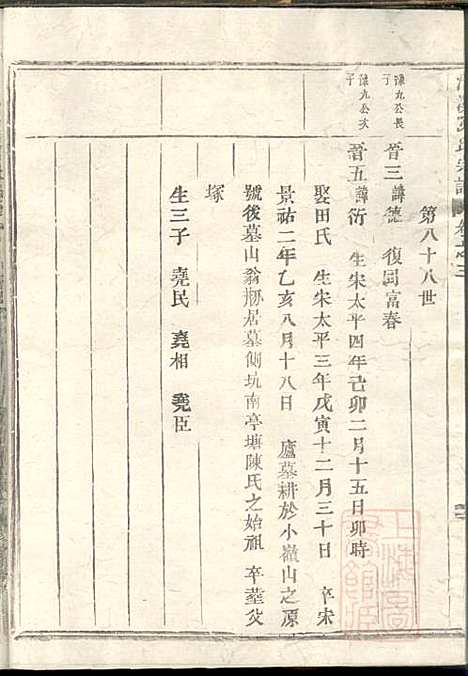 第八十八世
陳九公長子
晉三諱德 復圓富春
陳九公次子
晉五諱衍 生宋太平四年己卯二月十五日卯時
娶田氏 生宋太平三年戊寅十二月三十日 卒宋
景祐二年乙亥八月十八日 廬墓耕於小嶺山之源
號後墓山翁 居墓側坑南亭塘陳氏之始祖 卒塟父
塚
生三子 堯民 堯相 堯臣